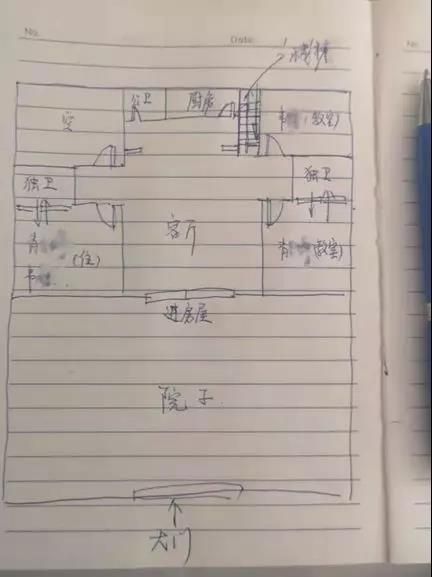 No.
Date
No.
楼梯
空
公卫
厨房
(教室)
独卫
独卫
客厅
(住)
(教室)
进房屋
院子
大门